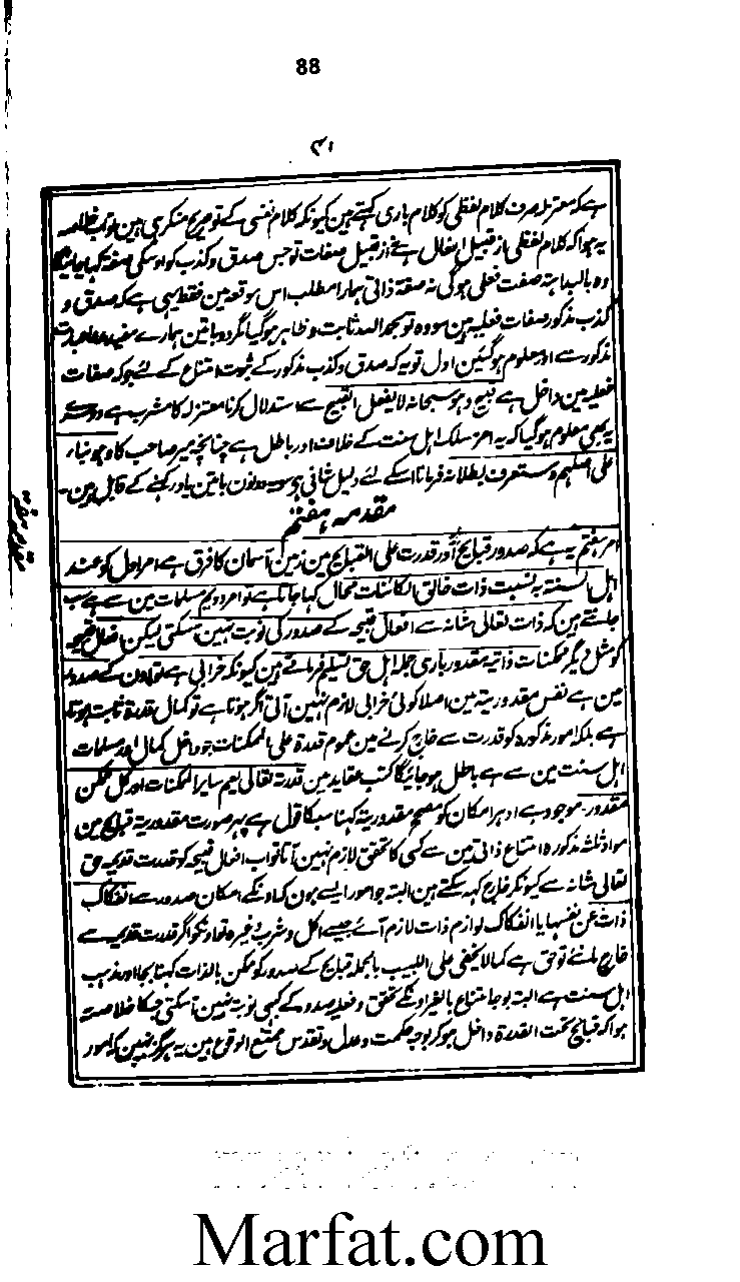 88
۴۱
ہے کہ معتزلہ صرف کلام لفظی کو کلام باری کہتے ہین کیونکہ کلام نفسی کے تو صریح منکر ہی ہین تو اب خلاصہ
یہ ہوا کہ کلام لفظی از قبیل افعال ہے نہ از قبیل صفات تو جس صدق و کذب کو اوسکی صفت کہا جائیگا
وہ بالبداہتہ صفت فعلی ہوگی نہ صفۃ ذاتی ہمارا مطلب اس موقعہ مین فقط یہی ہے کہ صدق و
کذب مذکور صفات فعلیہ ہین سو وہ تو بحمد اللہ ثابت و ظاہر ہو گیا مگر دو باتین ہمارے مفید
مذکور سے اور معلوم ہو گئین اول تو یہ کہ صدق و کذب مذکور کے ثبوت امتناع کے لئے جو کہ صفات
فعلیہ مین داخل ہے قبیح وہو سبحانہ لا یفعل القبیح سے استدلال کرنا معتزلہ کا مشرب ہے دوسرے
یہ بھی معلوم ہو گیا کہ یہ امر مسلک اہل سنت کے خلاف اور باطل ہے چنانچہ میر صاحب کا وہو بناء
علی اصلہم وستعرف بطلانہ فرمانا اسکے لئے دلیل شافی ہے سو یہ دونون باتین یاد رکھنے کے قابل ہین۔
مقدمہ ہفتم
امر ہفتم یہ ہے کہ صدور قبایح اور قدرت علی القبایح مین زمین آسمان کا فرق ہے امر اول کو عند
اہل السنۃ بہ نسبت ذات خالق الکائنات محال کہا جاتا ہے تو امر دویم مسلمات مین سے ہے سب
جانتے ہین کہ ذات تعالی شانہ سے افعال قبیحہ کے صدور کی نوبت نہین آسکتی لیکن افعال قبیحہ
کو مثل دیگر ممکنات ذاتیہ مقدور باری جملہ اہل حق تسلیم فرماتے ہین کیونکہ خرابی ہے تو اون کے صدور
مین ہے نفس مقدوریۃ مین اصلا کوئی خرابی لازم نہین آتی اگر ہوتا ہے تو کمال قدرۃ ثابت ہوتا
ہے بلکہ امور مذکورہ کو قدرت سے خارج کرنے مین عموم قدرۃ علی الممکنات جو داخل کمال اور مسلمات
اہل سنت مین سے ہے باطل ہو جائیگا کتب عقاید مین قدرۃ تعالی یعم سایر الممکنات اور کل ممکن
مقدور۔ موجود ہے ادہر امکان کو مصحح مقدوریۃ کہنا سبکا قول ہے پہر صورت مقدوریۃ قبایح مین
مواد ثلثہ مذکورہ امتناع ذاتی مین سے کسی کا تحقق لازم نہین آتا تو اب افعال قبیحہ کو قدرت قدیمہ حق
تعالی شانہ سے کیونکر خارج کہہ سکتے ہین البتہ جو امور ایسے ہون کہ اونکے امکان صدور سے انفکاک
ذات عن نفسہا یا انفکاک لوازم ذات لازم آئے جیسے اکل و شرب وغیرہ تو اونکو اگر قدرت قدیمہ سے
خارج مانئے تو حق ہے کما لا یخفی علی اللبیب بالجملہ قبایح کے صدور کو ممکن بالذات کہنا بجا اور مذہب
اہل سنت ہے البتہ بوجہ امتناع بالغیر اونکے تحقق و فعلیۃ صدور کے کبھی نوبت نہین آسکتی جسکا خلاصہ
ہوا کہ قبایح تحت القدرۃ داخل ہو کر بوجہ حکمت و عدل و تقدس ممتنع الوقوع ہین یہ ہرگز نہین کہ امور
Marfat.com